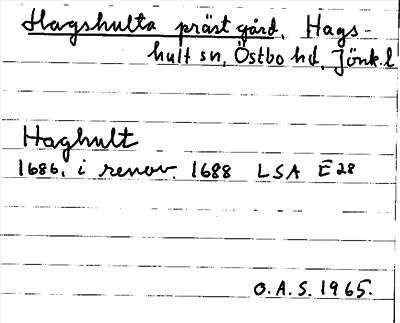 Hagshulta prästgård, Hags-
hult sn, Östbo hd, Jönk. l
Haghult
1686, i renov. 1688 LSA E 28
O.A.S. 1965.